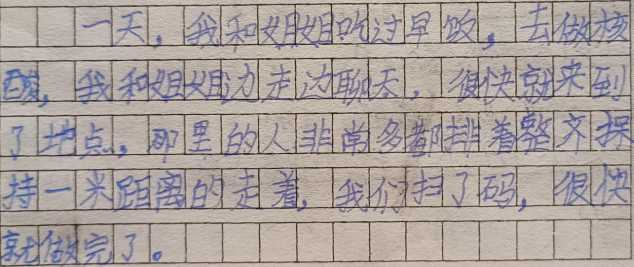 一天，我和姐姐吃过早饭，去做核
酸，我和姐姐边走边聊天，很快就来到
了地点，那里的人非常多都排着整齐保
持一米距离的走着，我们扫了码，很快
就做完了。